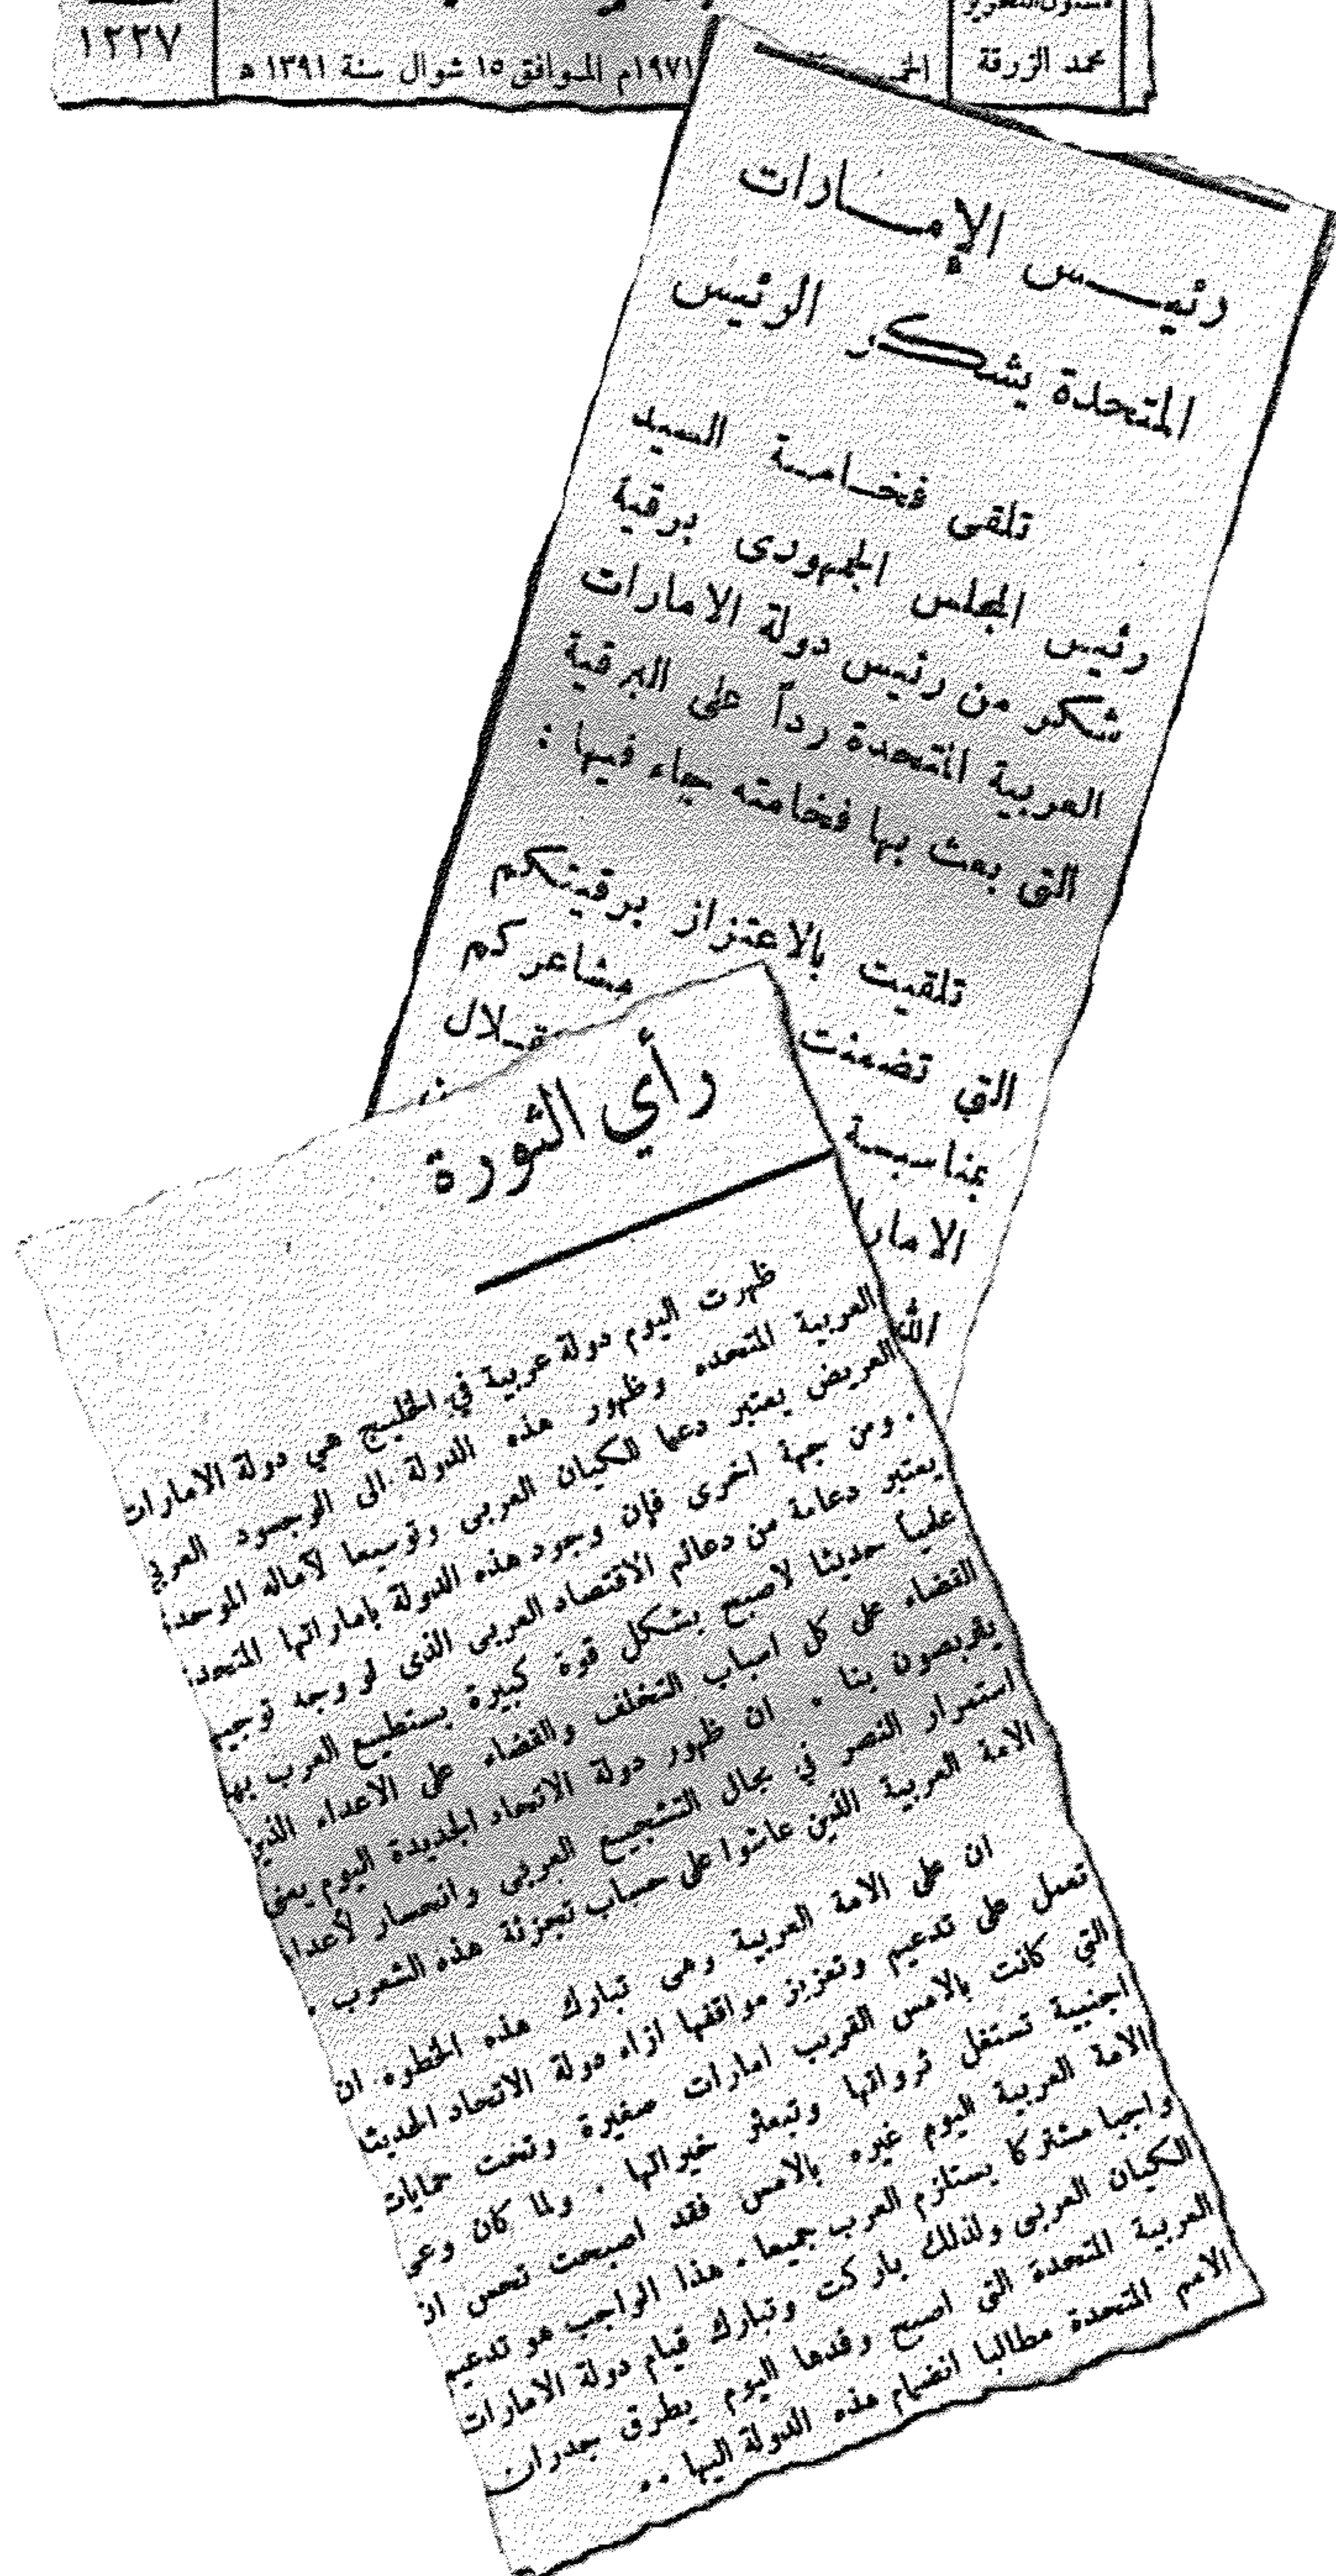 محمد الزرقة
١٩٧١م الموافق ١٥ شوال سنة ١٣٩١ ه
١٢٢٧
رئيس الإمارات
المتحدة يشكر الرئيس
تلقى فخامة السيد
رئيس المجلس الجمهورى برقية
شكر من رئيس دولة الامارات
العربية المتحدة رداً على البرقية
التى بعث بها فخامته جاء فيها :
تلقيت بالاعتزاز برقيتكم
التي تضمنت مشاعركم
بمناسبة
الله
رأي الثورة
ظهرت اليوم دولة عربية في الخليج هي دولة الامارات
العربية المتحده وظهور هذه الدولة الى الوجود العربي
العريض يعتبر دعما للكيان العربى وتوسيعا لآماله الموحدة
. ومن جهة اخرى فإن وجود هذه الدولة بإماراتها المتحدة
يعتبر دعامة من دعائم الاقتصاد العربى الذى لو وجد توجيها
علميا حديثا لاصبح بشكل قوة كبيرة يستطيع العرب بها
القضاء على كل اسباب التخلف والقضاء على الأعداء الذين
يتربصون بنا . ان ظهور دولة الاتحاد الجديدة اليوم يعنى
استمرار النصر في مجال التشجيع العربى وانحسار لأعداء
الامة العربية الذين عاشوا على حساب تجزئة هذه الشعوب .
ان على الامة العربية وهى تبارك هذه الخطوه ان
تعمل على تدعيم وتعزيز مواقفها ازاء دولة الاتحاد الحديثة
التي كانت بالامس القريب امارات صغيرة وتحت حمايات
اجنبية تستغل ثرواتها وتبعثر خيراتها . ولما كان وعي
الامة العربية اليوم غيره بالامس فقد اصبحت تحس ان
واجبا مشتركا يستلزم العرب جميعا . هذا الواجب هو تدعيم
الكيان العربى ولذلك باركت وتبارك قيام دولة الامارات
العربية المتحدة التى اصبح وفدها اليوم يطرق جدران
الامم المتحدة مطالبا انضمام هذه الدولة اليها . .